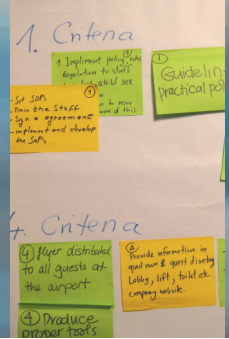 1. Criteria
1 Implement policy, rules
Regulation to staff
child sex
to move
of this
1
Guidelin
practical pol
1
- Set SOPs
- Train the staff
- Sign a agreement
- implement and develop
the SOPs
4. Criteria
4 flyer distributed
to all guests at
the airport
4 Produce
proper tools
4
Provide information in
guest room & guest directory
Lobby, lift, toilet etc.
company website.